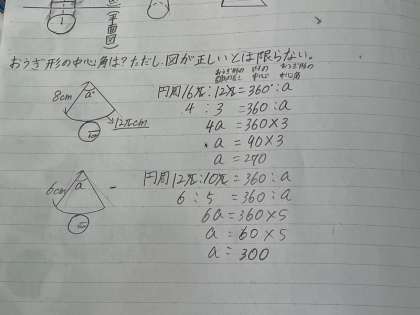 (平面図)
おうぎ形の中心角は?ただし、図が正しいとは限らない。
おうぎ形の 円の おうぎ形の
中心 中心角
8cm a° 円周16π:12π=360°:a
4:3=360:a
12πcm
4a=360×3
a=90×3
a=270
6cm a 円周12π:10π=360:a
6:5=360:a
6a=360×5
a=60×5
a=300